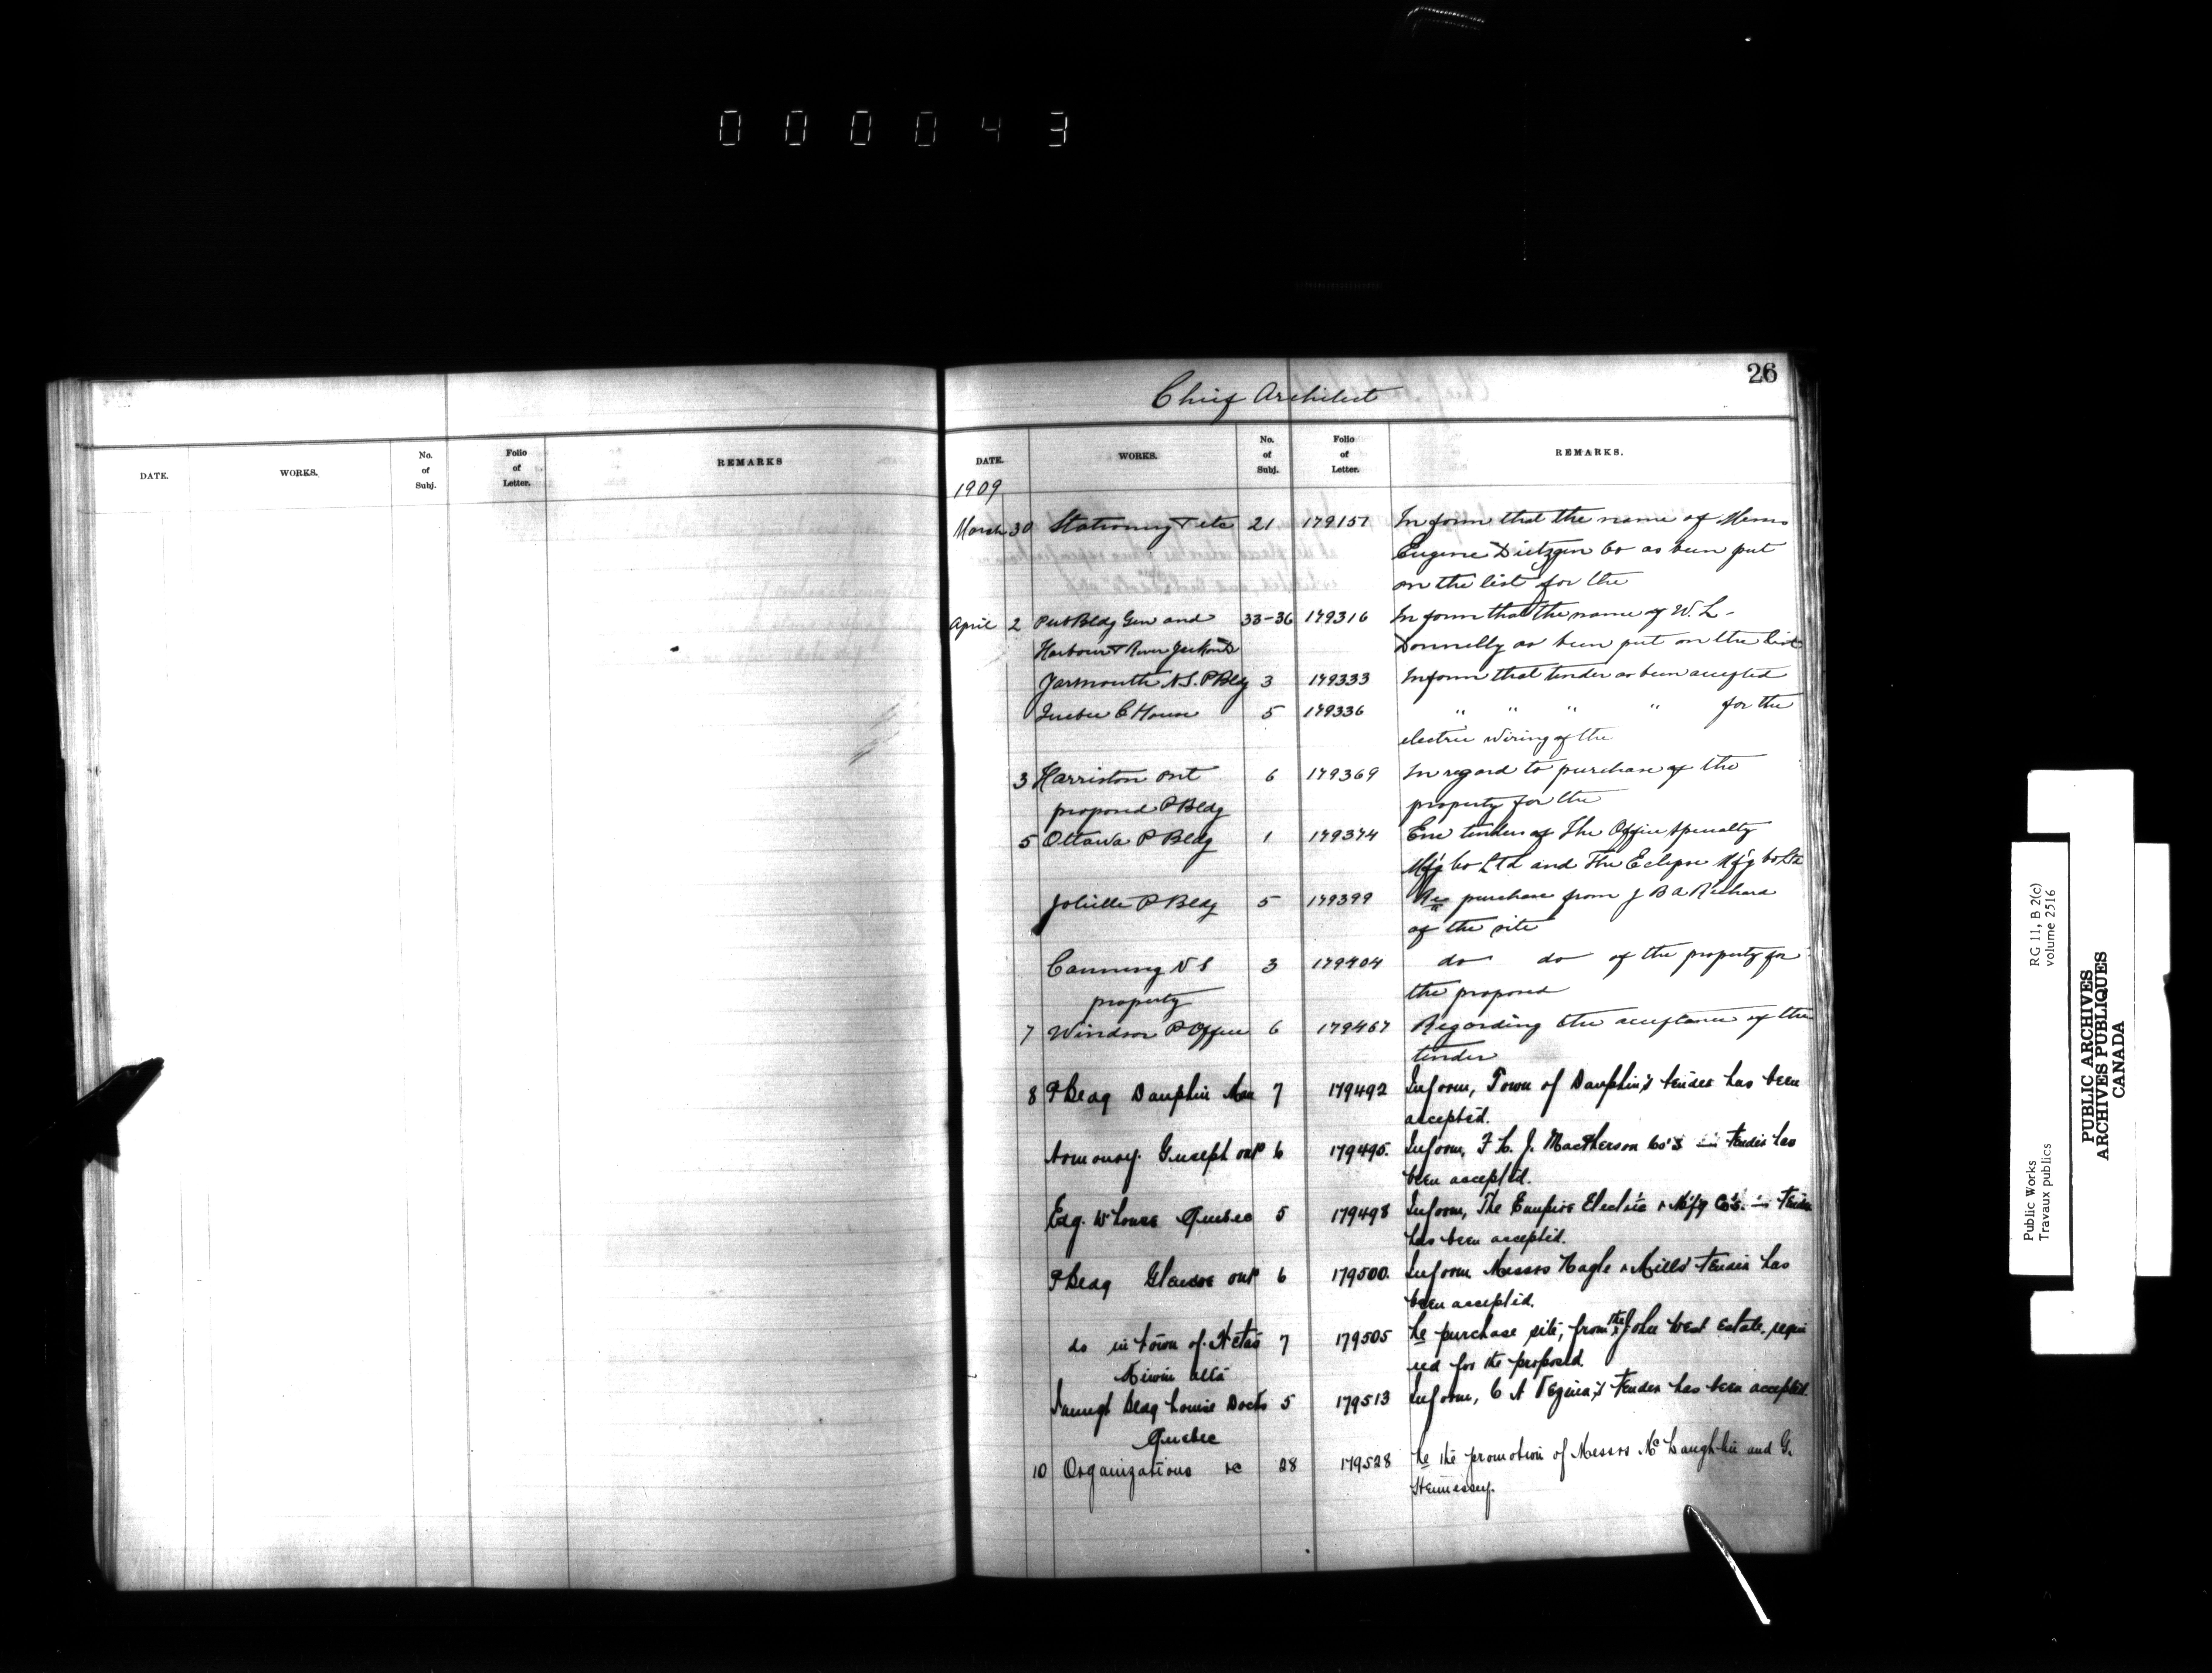 0 0 0 0 4 3
26
Chief Architect
DATE. WORKS. No. of Subj. Folio of Letter. REMARKS
DATE. WORKS. No. of Subj. Folio of Letter. REMARKS.
1909
March 30 Stationery & etc 21 179157 Inform that the name of Messrs
Eugene Dietzgen Co as been put
on the list for the
April 2 Pub Bldg Gen and 33-36 179316 Inform that the name of W. L.
Harbour & River Donnelly as been put on the list
Yarmouth N.S. P Bldg 3 179333 Inform that tender as been accepted
Quebec C House 5 179336 " " " " for the
electric wiring of the
3 Harriston Ont 6 179369 In regard to purchase of the
proposed P Bldg property for the
5 Ottawa P Bldg 1 179374 Enc tenders of The Office Specialty
Mfg Co Ltd and The Eclipse Mfg Co Ltd
Joliette P Bldg 5 179399 Re purchase from J B A Richard
of the site
Canning N S 3 179404 do do of the property for
property the proposed
7 Windsor P Office 6 179467 Regarding the acceptance of the
tender
8 P Bldg Dauphin Man 7 179492 Inform, Town of Dauphin's tender has been
accepted.
Armoury. Guelph Ont 6 179495. Inform, F. H. J. MacPherson Co's tender has
been accepted.
Exg. W House Quebec 5 179498 Inform, The Empire Electric & Mfg Co's. tender
has been accepted.
P Bldg Glencoe Ont 6 179500. Inform Messrs Nagle & Mills' tender has
been accepted.
do in town of Wetas 7 179505 Re purchase site, from the John West Estate, requi
kiwin Alta red for the proposed.
Immgt Bldg Louise Docks 5 179513 Inform, C A tender has been accepted.
Quebec
10 Organizations &c 28 179528 Re the promotion of Messrs McLaughlin and G.
Hennessy.
Public Works RG 11, B 2(c)
Travaux publics volume 2516
PUBLIC ARCHIVES
ARCHIVES PUBLIQUES
CANADA